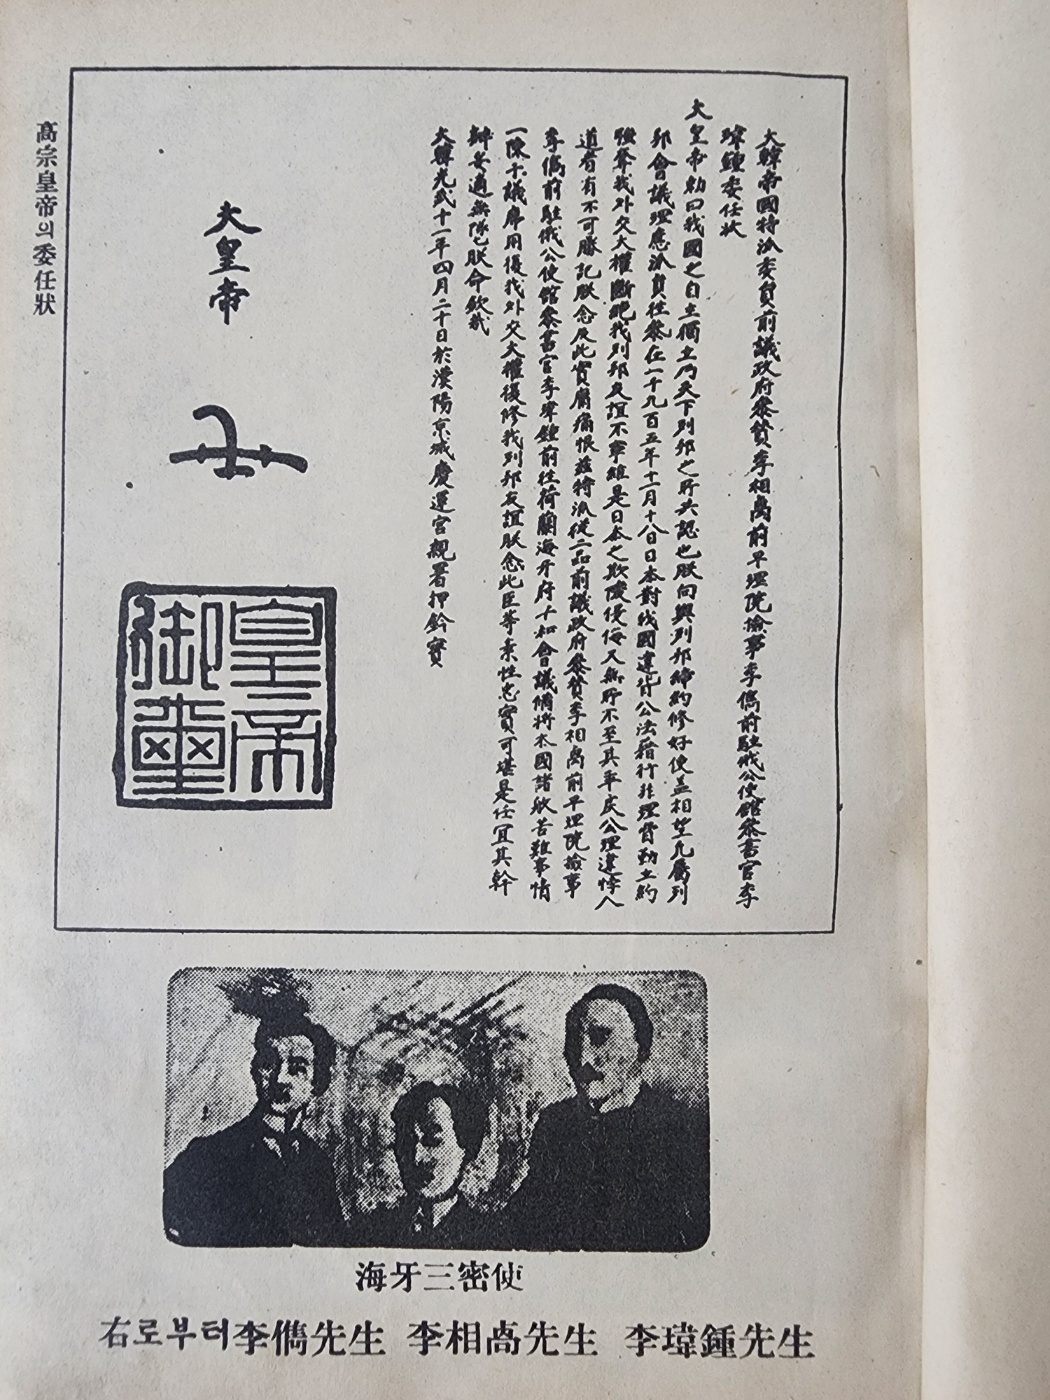 高宗皇帝의委任狀
大韓帝國特派委員前議政府參贊李相卨前平理院檢事李儁前駐俄公使館參書官李
瑋鍾委任狀
大皇帝勅曰我國之自主獨立乃天下列邦之所共認也朕向與列邦締約修好使盖相望凡屬列
邦會議理應派員往參在一千九百五年十一月十八日日本對我國違背公法藉行非理脅勒立約
聯奪我外交大權斷絶我列邦友誼不寧維是日本之欺凌侵侮又無所不至其乖戾公理違悖人
道者有不可勝記朕念及此實屬痛恨茲特派從二品前議政府參贊李相卨前平理院檢事
李儁前駐俄公使館參書官李瑋鍾前往荷蘭海牙府平和會議備將本國諸般苦難事情
一陳于議席用復我外交大權復修我列邦友誼朕念此臣等素性忠實可堪是任宜其幹
辦妥適無墜朕命欽哉
大韓光武十一年四月二十日於漢陽京城慶運宮親署押鈐寶
大皇帝
皇帝
御璽
海牙三密使
右로부터李儁先生 李相卨先生 李瑋鍾先生